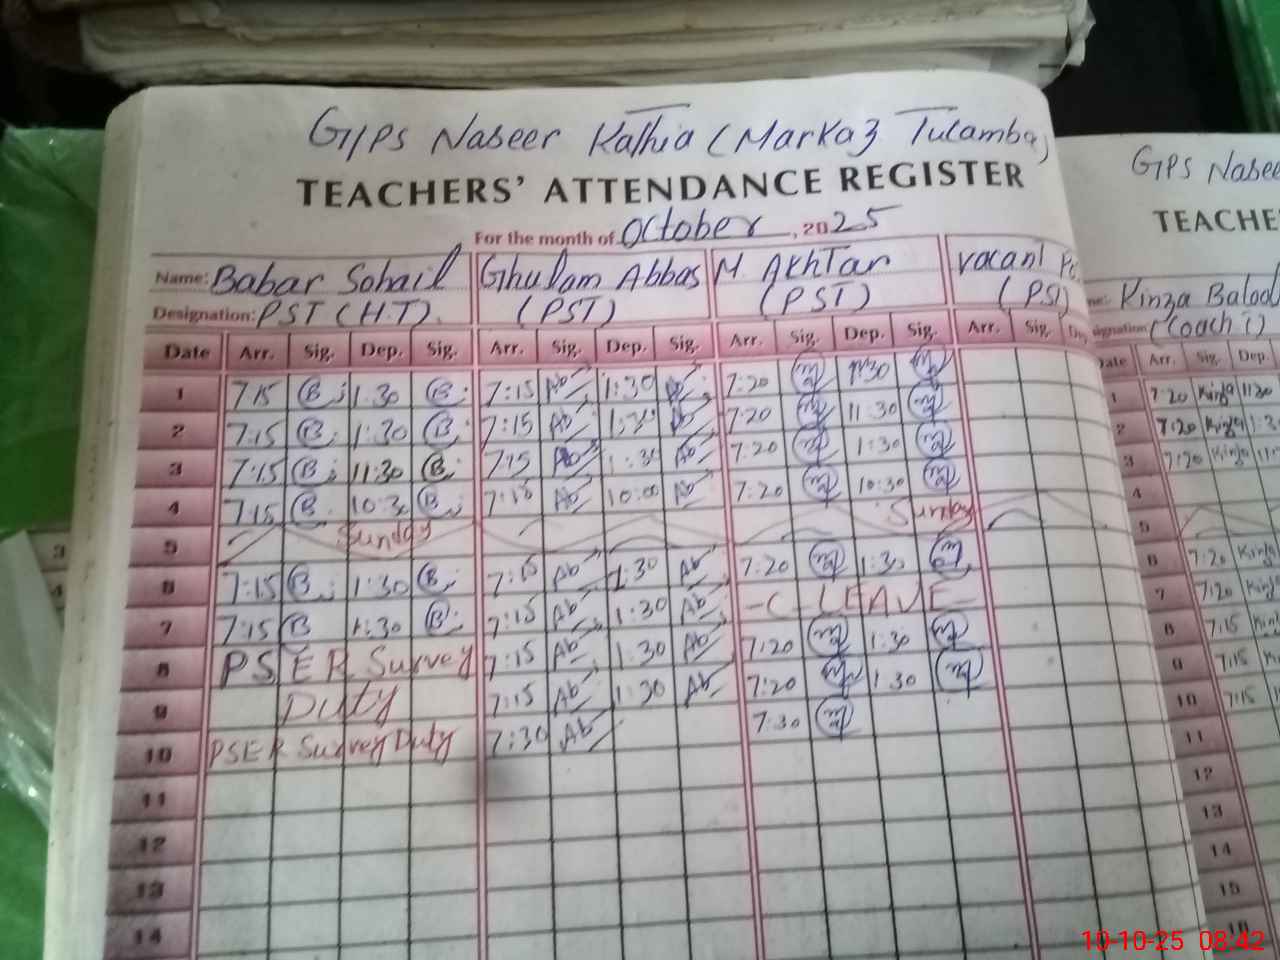 G/PS Naseer Kathia (Markaz Tulamba)
TEACHERS' ATTENDANCE REGISTER
For the month of October, 2025
Name: Babar Sohail Ghulam Abbas M. Akhtar vacant
Designation: PST (H.T). (PST) (PST) (PST)
Date Arr. Sig. Dep. Sig. Arr. Sig. Dep. Sig. Arr. Sig. Dep. Sig. Arr. Sig. Dep.
1 7:15 B 1:30 B 7:15 Ab 1:30 Ab 7:20 11:30
2 7:15 B 1:30 B 7:15 Ab 1:30 Ab 7:20 11:30
3 7:15 B 11:30 B 7:15 Ab 1:30 Ab 7:20 1:30
4 7:15 B 10:30 B 7:15 Ab 10:00 Ab 7:20 10:30
5 Sunday Sunday
6 7:15 B 1:30 B 7:15 Ab 1:30 Ab 7:20 1:30
7 7:15 B 1:30 B 7:15 Ab 1:30 Ab -C- LEAVE
8 PSER Survey 7:15 Ab 1:30 Ab 7:20 1:30
9 Duty 7:15 Ab 1:30 Ab 7:20 1:30
10 PSER Survey Duty 7:30 Ab 7:30
11
12
13
14
G/PS Nasee
TEACHE
Kinza Balod
(Coach i)
Date Arr. Sig. Dep.
1 7:20 Kinza 11:30
2 7:20 Kinza
3 7:20 Kinza
4
5
6 7:20 Kinz
7 7:20 Kinz
8 7:15 Kin
9 7:15
10 7:15
11
12
13
14
15
16
10-10-25 08:42